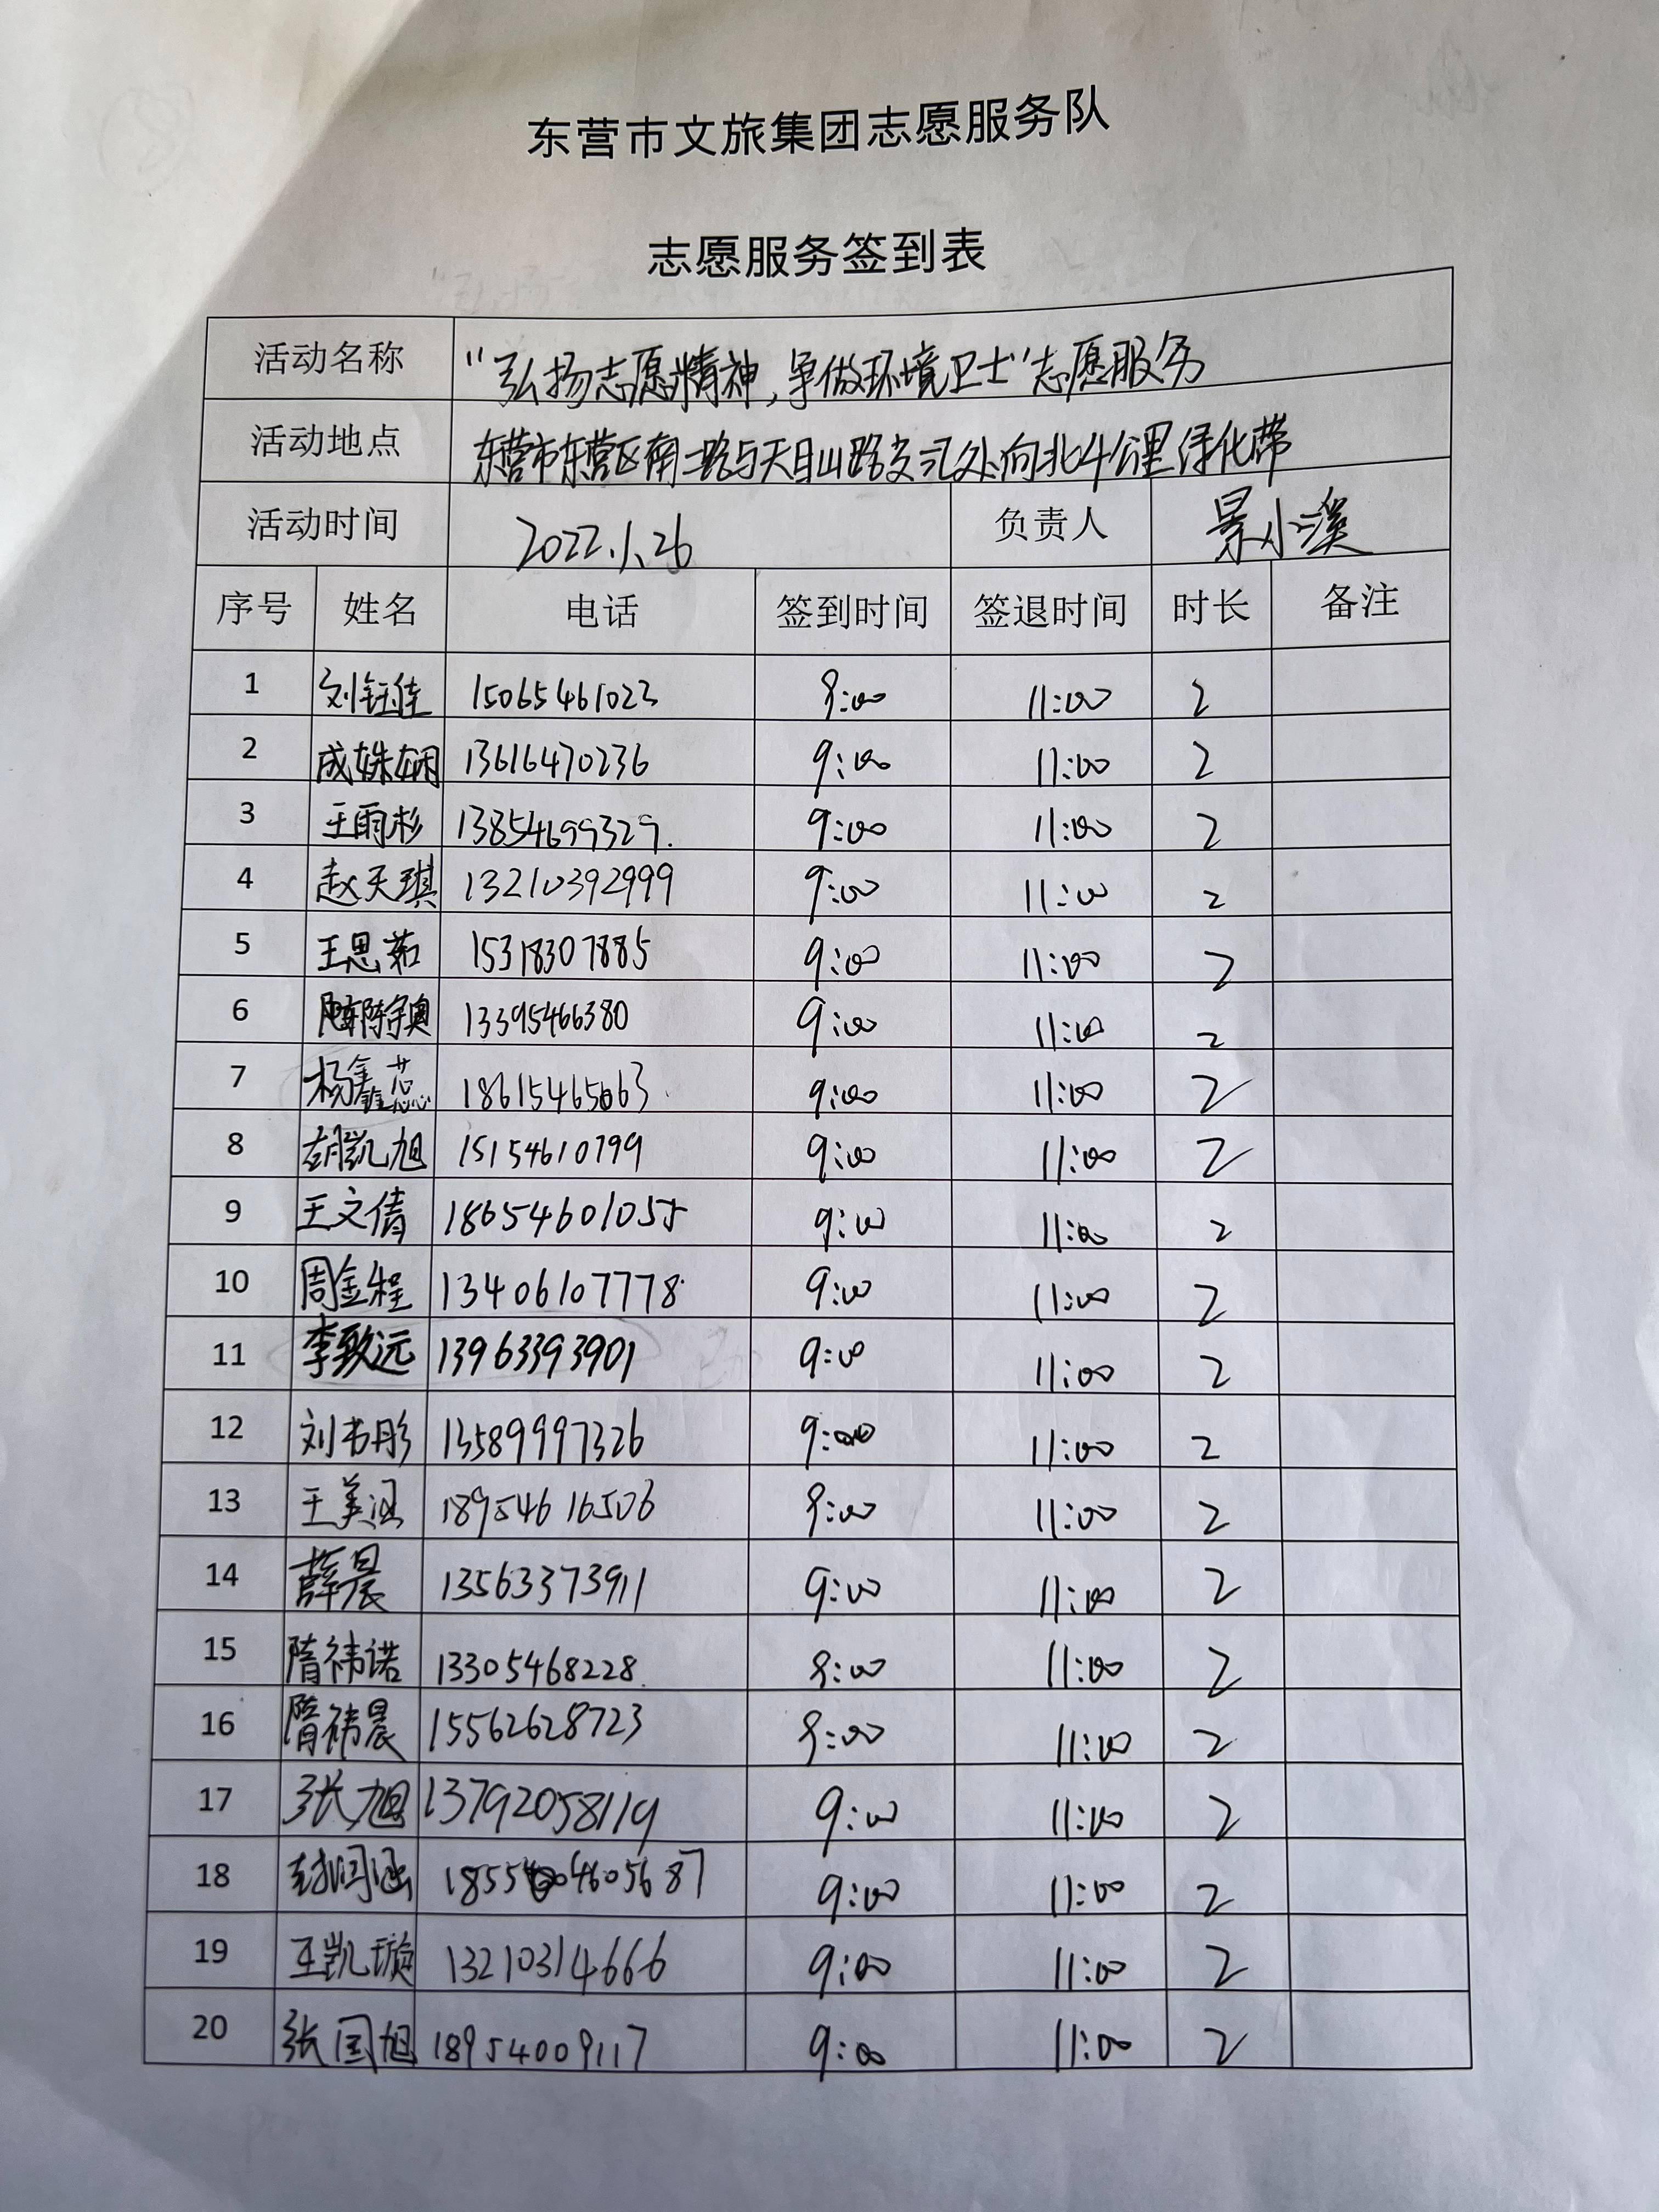 东营市文旅集团志愿服务队
志愿服务签到表
活动名称 "弘扬志愿精神,争做环境卫士"志愿服务
活动地点 东营市东营区南二路与天目山路交汇处向北4公里绿化带
活动时间 2022.1.26 负责人 景小溪
序号 姓名 电话 签到时间 签退时间 时长 备注
1 刘钰佳 15065461023 9:00 11:00 2
2 成姝娴 13616470236 9:00 11:00 2
3 王雨杉 13854699329. 9:00 11:00 2
4 赵天琪 13210392999 9:00 11:00 2
5 王思茹 15318307885 9:00 11:00 2
6 陈宇奥 13395466380 9:00 11:00 2
7 杨鑫蕊 18615465663 9:00 11:00 2
8 胡凯旭 15154610799 9:00 11:00 2
9 王文倩 18654601055 9:00 11:00 2
10 周金程 13406107778 9:00 11:00 2
11 李致远 13963393901 9:00 11:00 2
12 刘书彤 13589997326 9:00 11:00 2
13 王美涵 18954616506 9:00 11:00 2
14 薛晨 13563373911 9:00 11:00 2
15 隋祎诺 13305468228. 9:00 11:00 2
16 隋祎晨 15562628723 9:00 11:00 2
17 张旭 13792058119 9:00 11:00 2
18 9:00 11:00 2
19 王凯璇 13210314666 9:00 11:00 2
20 张国旭 18954009117 9:00 11:00 2